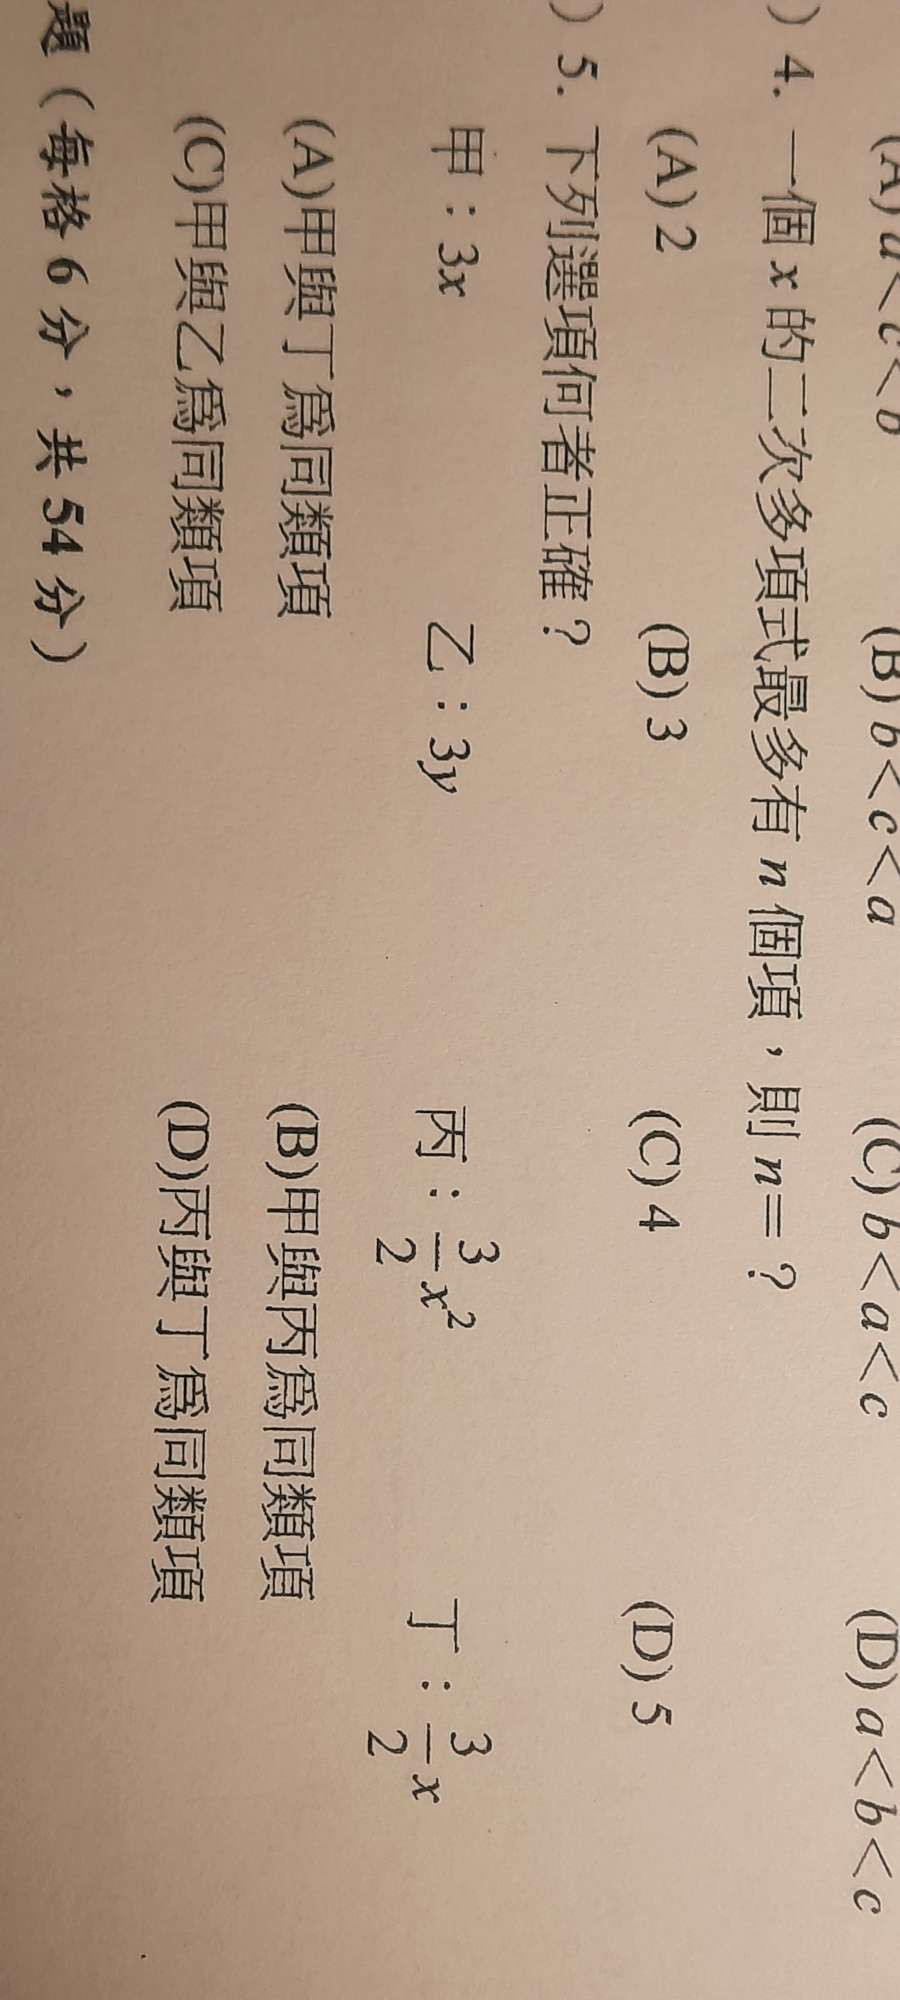 (A) a<c<b (B) b<c<a (C) b<a<c (D) a<b<c
) 4. 一個 x 的二次多項式最多有 n 個項，則 n=？
(A) 2 (B) 3 (C) 4 (D) 5
) 5. 下列選項何者正確？
甲：3x 乙：3y 丙：3/2 x² 丁：3/2 x
(A)甲與丁為同類項 (B)甲與丙為同類項
(C)甲與乙為同類項 (D)丙與丁為同類項
題（每格 6 分，共 54 分）